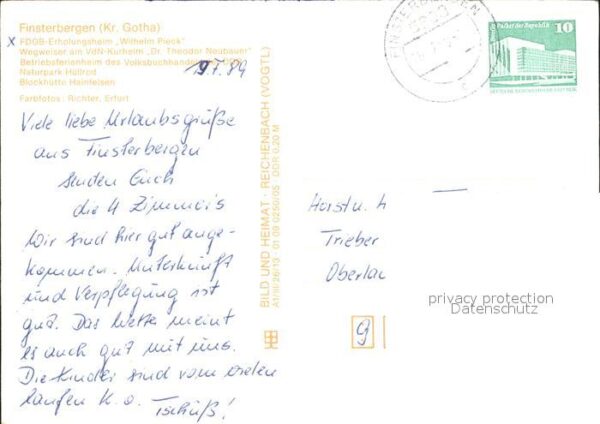 Finsterbergen (Kr. Gotha)
x FDGB-Erholungsheim „Wilhelm Pieck"
Wegweiser am VdN-Kurheim „Dr. Theodor Neubauer"
Betriebsferienheim des Volksbuchhandels
Naturpark Hüllrod
Blockhütte Hainfelsen
Farbfotos: Richter, Erfurt
19.7.89
Viele liebe Urlaubsgrüße
aus Finsterbergen
senden Euch
die 4 Zimmer's
Wir sind hier gut ange-
kommen. Unterkunft
und Verpflegung ist
gut. Das Wetter meint
es auch gut mit uns.
Die Kinder sind vom vielen
laufen K.o. Tschüß!
BILD UND HEIMAT · REICHENBACH (VOGTL)
A1/III/26/13 01 09 0250/05 DDR 0,20 M
FINSTERBERGEN
Palast der Republik 10
DEUTSCHE DEMOKRATISCHE REPUBLIK
Horst u. H
Trieber
Oberlau
privacy protection
Datenschutz
g